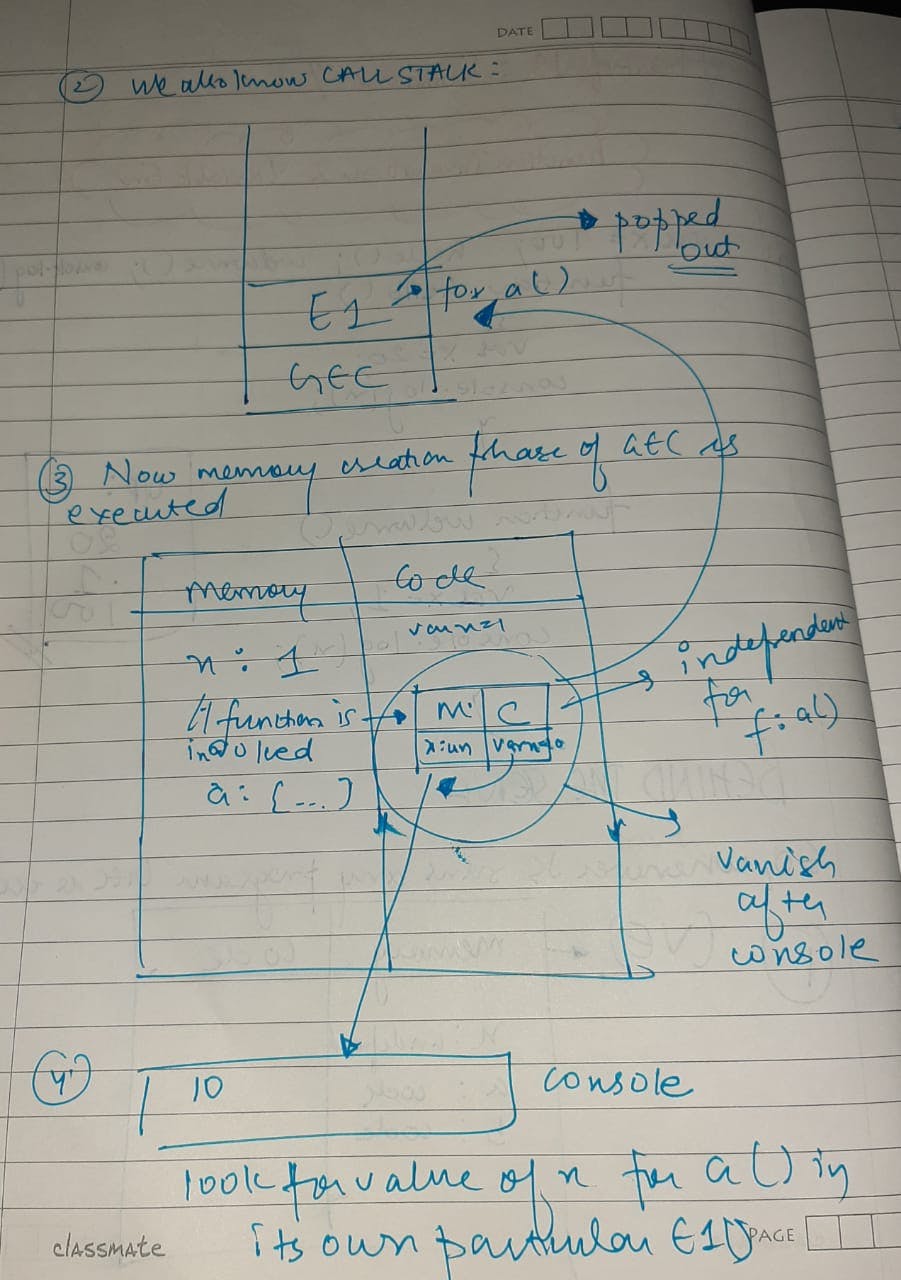 DATE
② We also know CALL STALK :
popped
out
E1 for a()
GEC
③ Now memory creation phase of GEC is
executed
memory Code
var x=1
x : 1
independent
for
f: a()
If function is
M. C
invoked
x:un
a: {---}
vanish
after
console
④
10
console
look for value of x for a() in
its own particular E1()
classmate PAGE